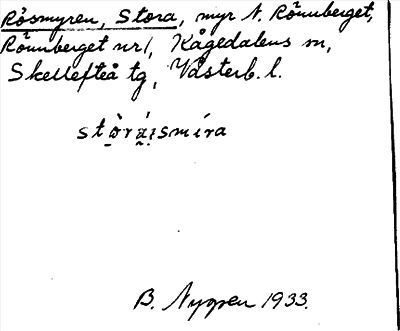 Rösmyren, Stora, myr N. Rönnberget,
Rönnberget nr 1, Kågedalens m,
Skellefteå tg, Västerb. l.
stø̀rá̤ịsmíra
B. Nygren 1933.